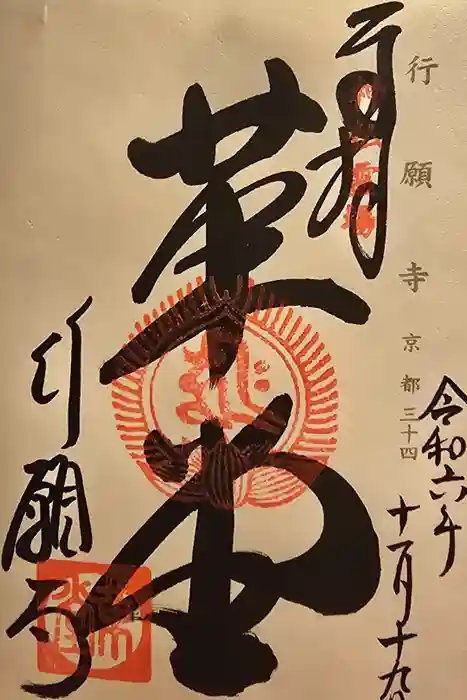 行願寺 京都三十四
奉拝
令和六年
十一月十九
革堂
行願寺